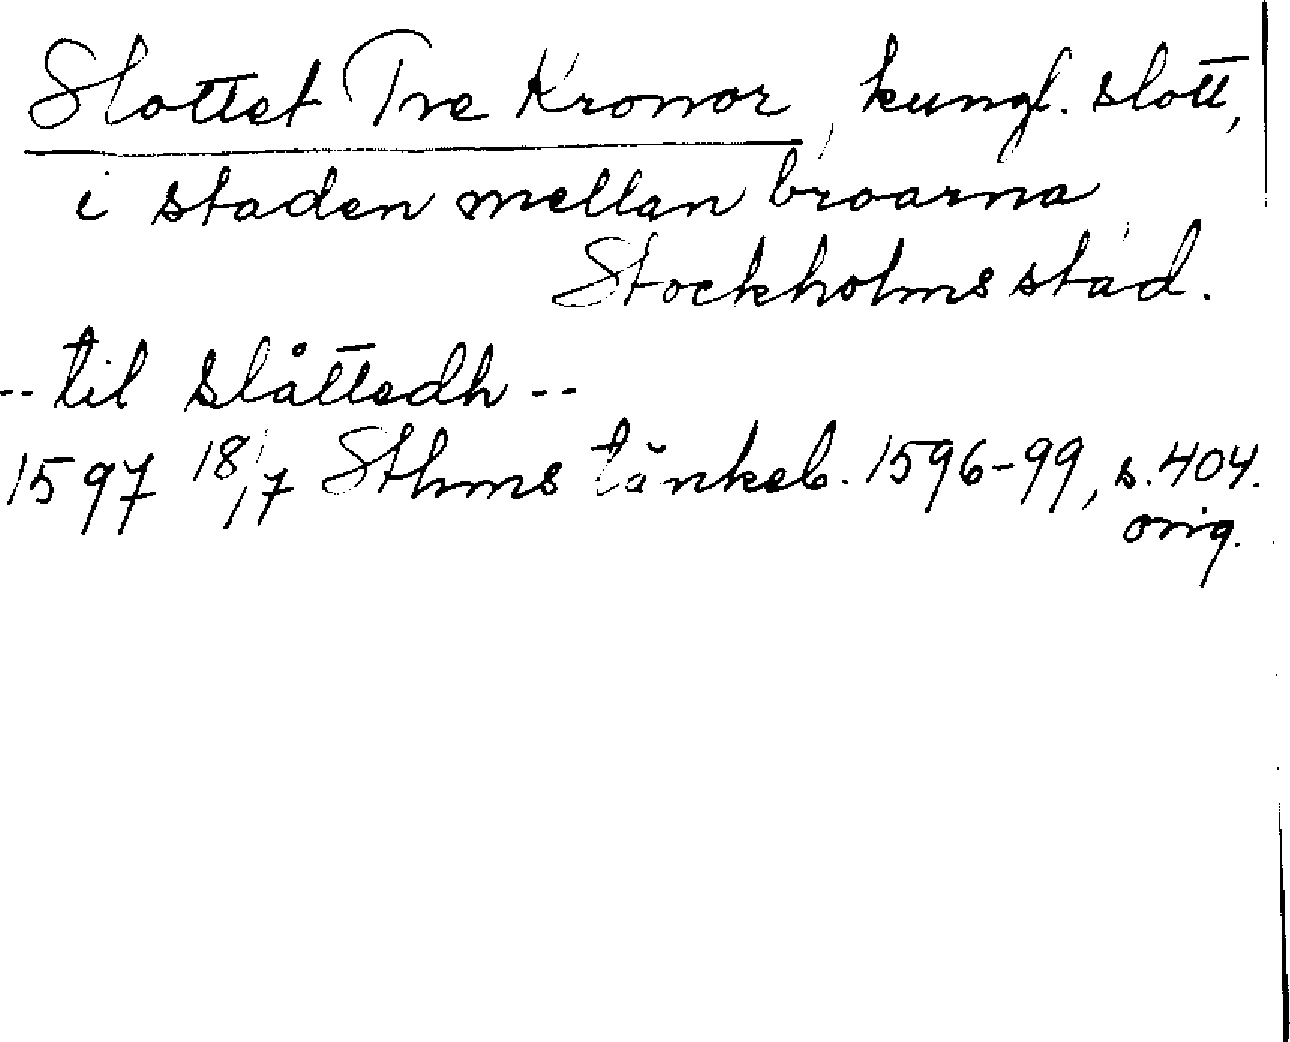 Slottet Tre Kronor, kungl. slott,
i staden mellan broarna,
Stockholms stad.
-- til slåttedh --
1597 18/7 Sthms tänkeb. 1596-99, s. 404.
orig.